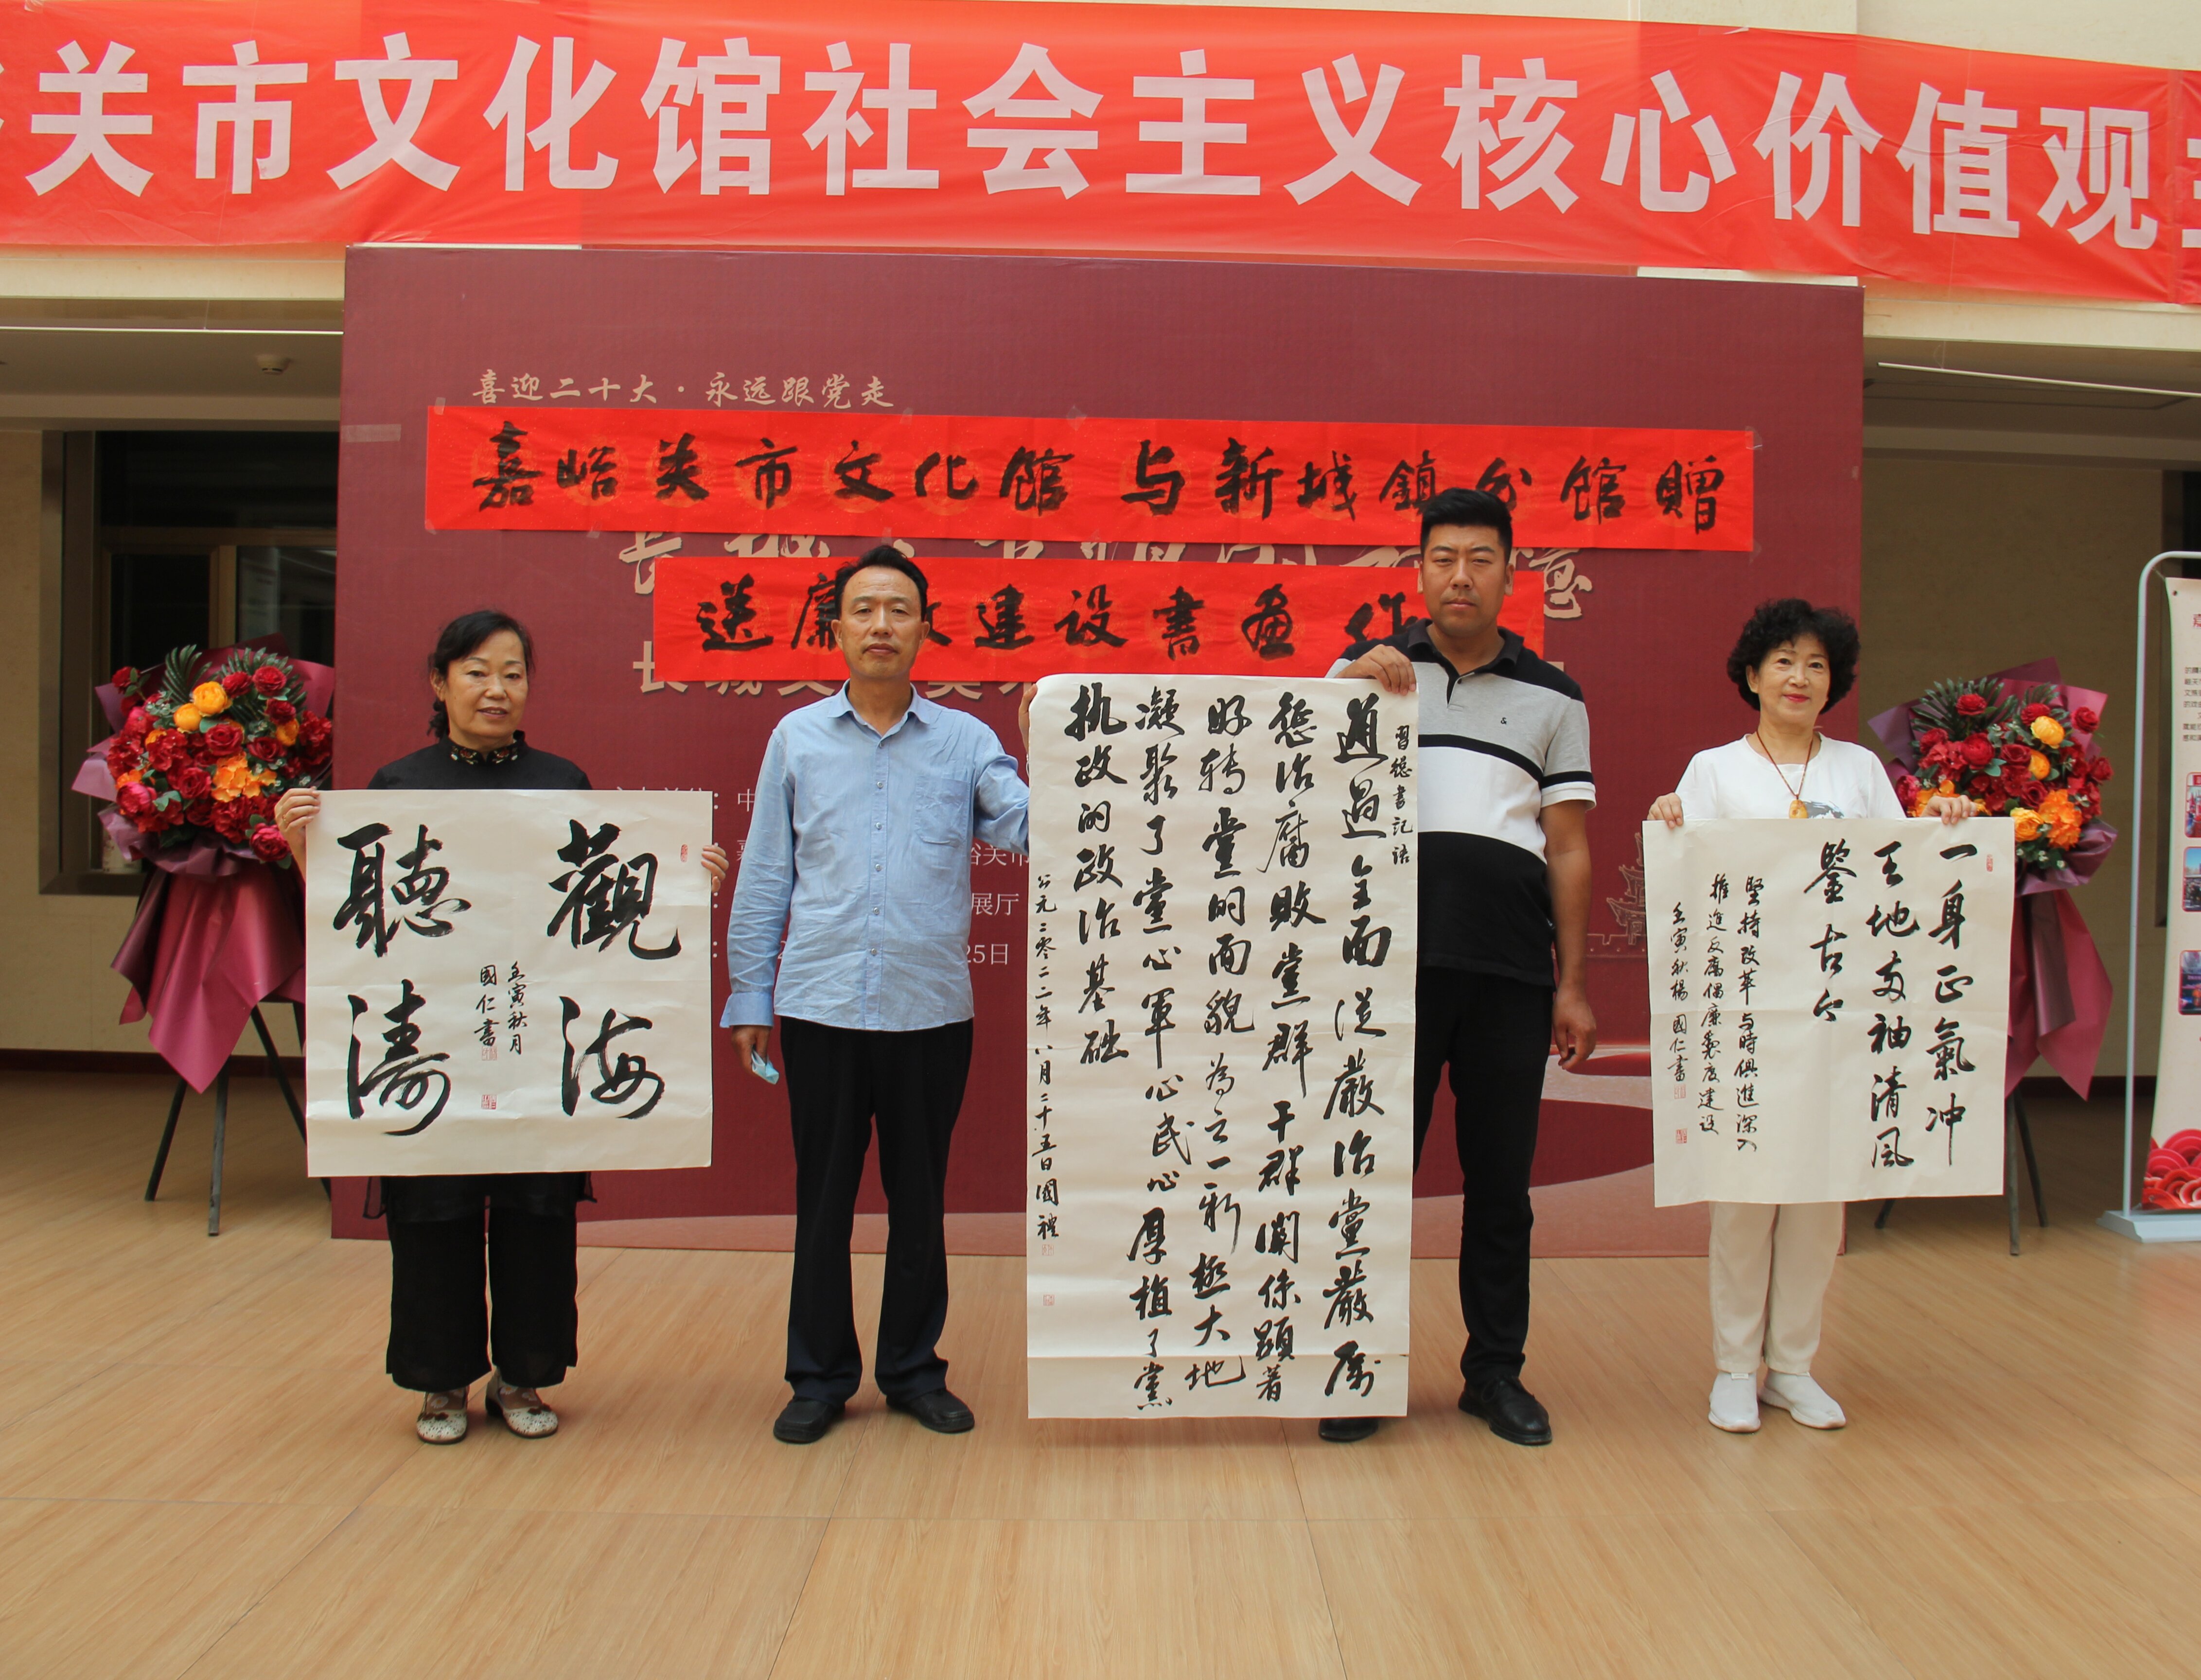 关市文化馆社会主义核心价值观主
喜迎二十大·永远跟党走
嘉峪关市文化馆 与新城镇分馆赠
送廉政建设書画作
長城
長城
展厅
25日
觀海
聽濤
壬寅秋月
國仁書
習總書記语
通過全面从嚴治黨嚴厲
懲治腐敗黨群干群関係顕著
好轉黨的面貌為之一新極大地
凝聚了黨心軍心民心厚植了黨
执政的政治基础
公元二零二二年八月二十五日國禮
一身正氣冲
天地两袖清風
鑒古今
堅持改革与時俱進深入
推進反腐倡廉製度建设
壬寅秋楊國仁書